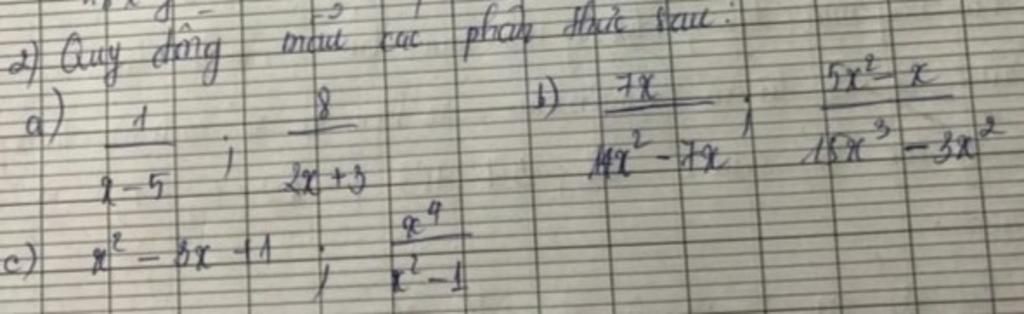 2) Quy đồng mẫu các phân thức sau:
a) 1/(x-5) ; 8/(2x+3) b) 7x/(14x² - 7x) ; (5x² - x)/(15x³ - 3x²)
c) x² - 3x + 1 ; x⁴/(x² - 1)